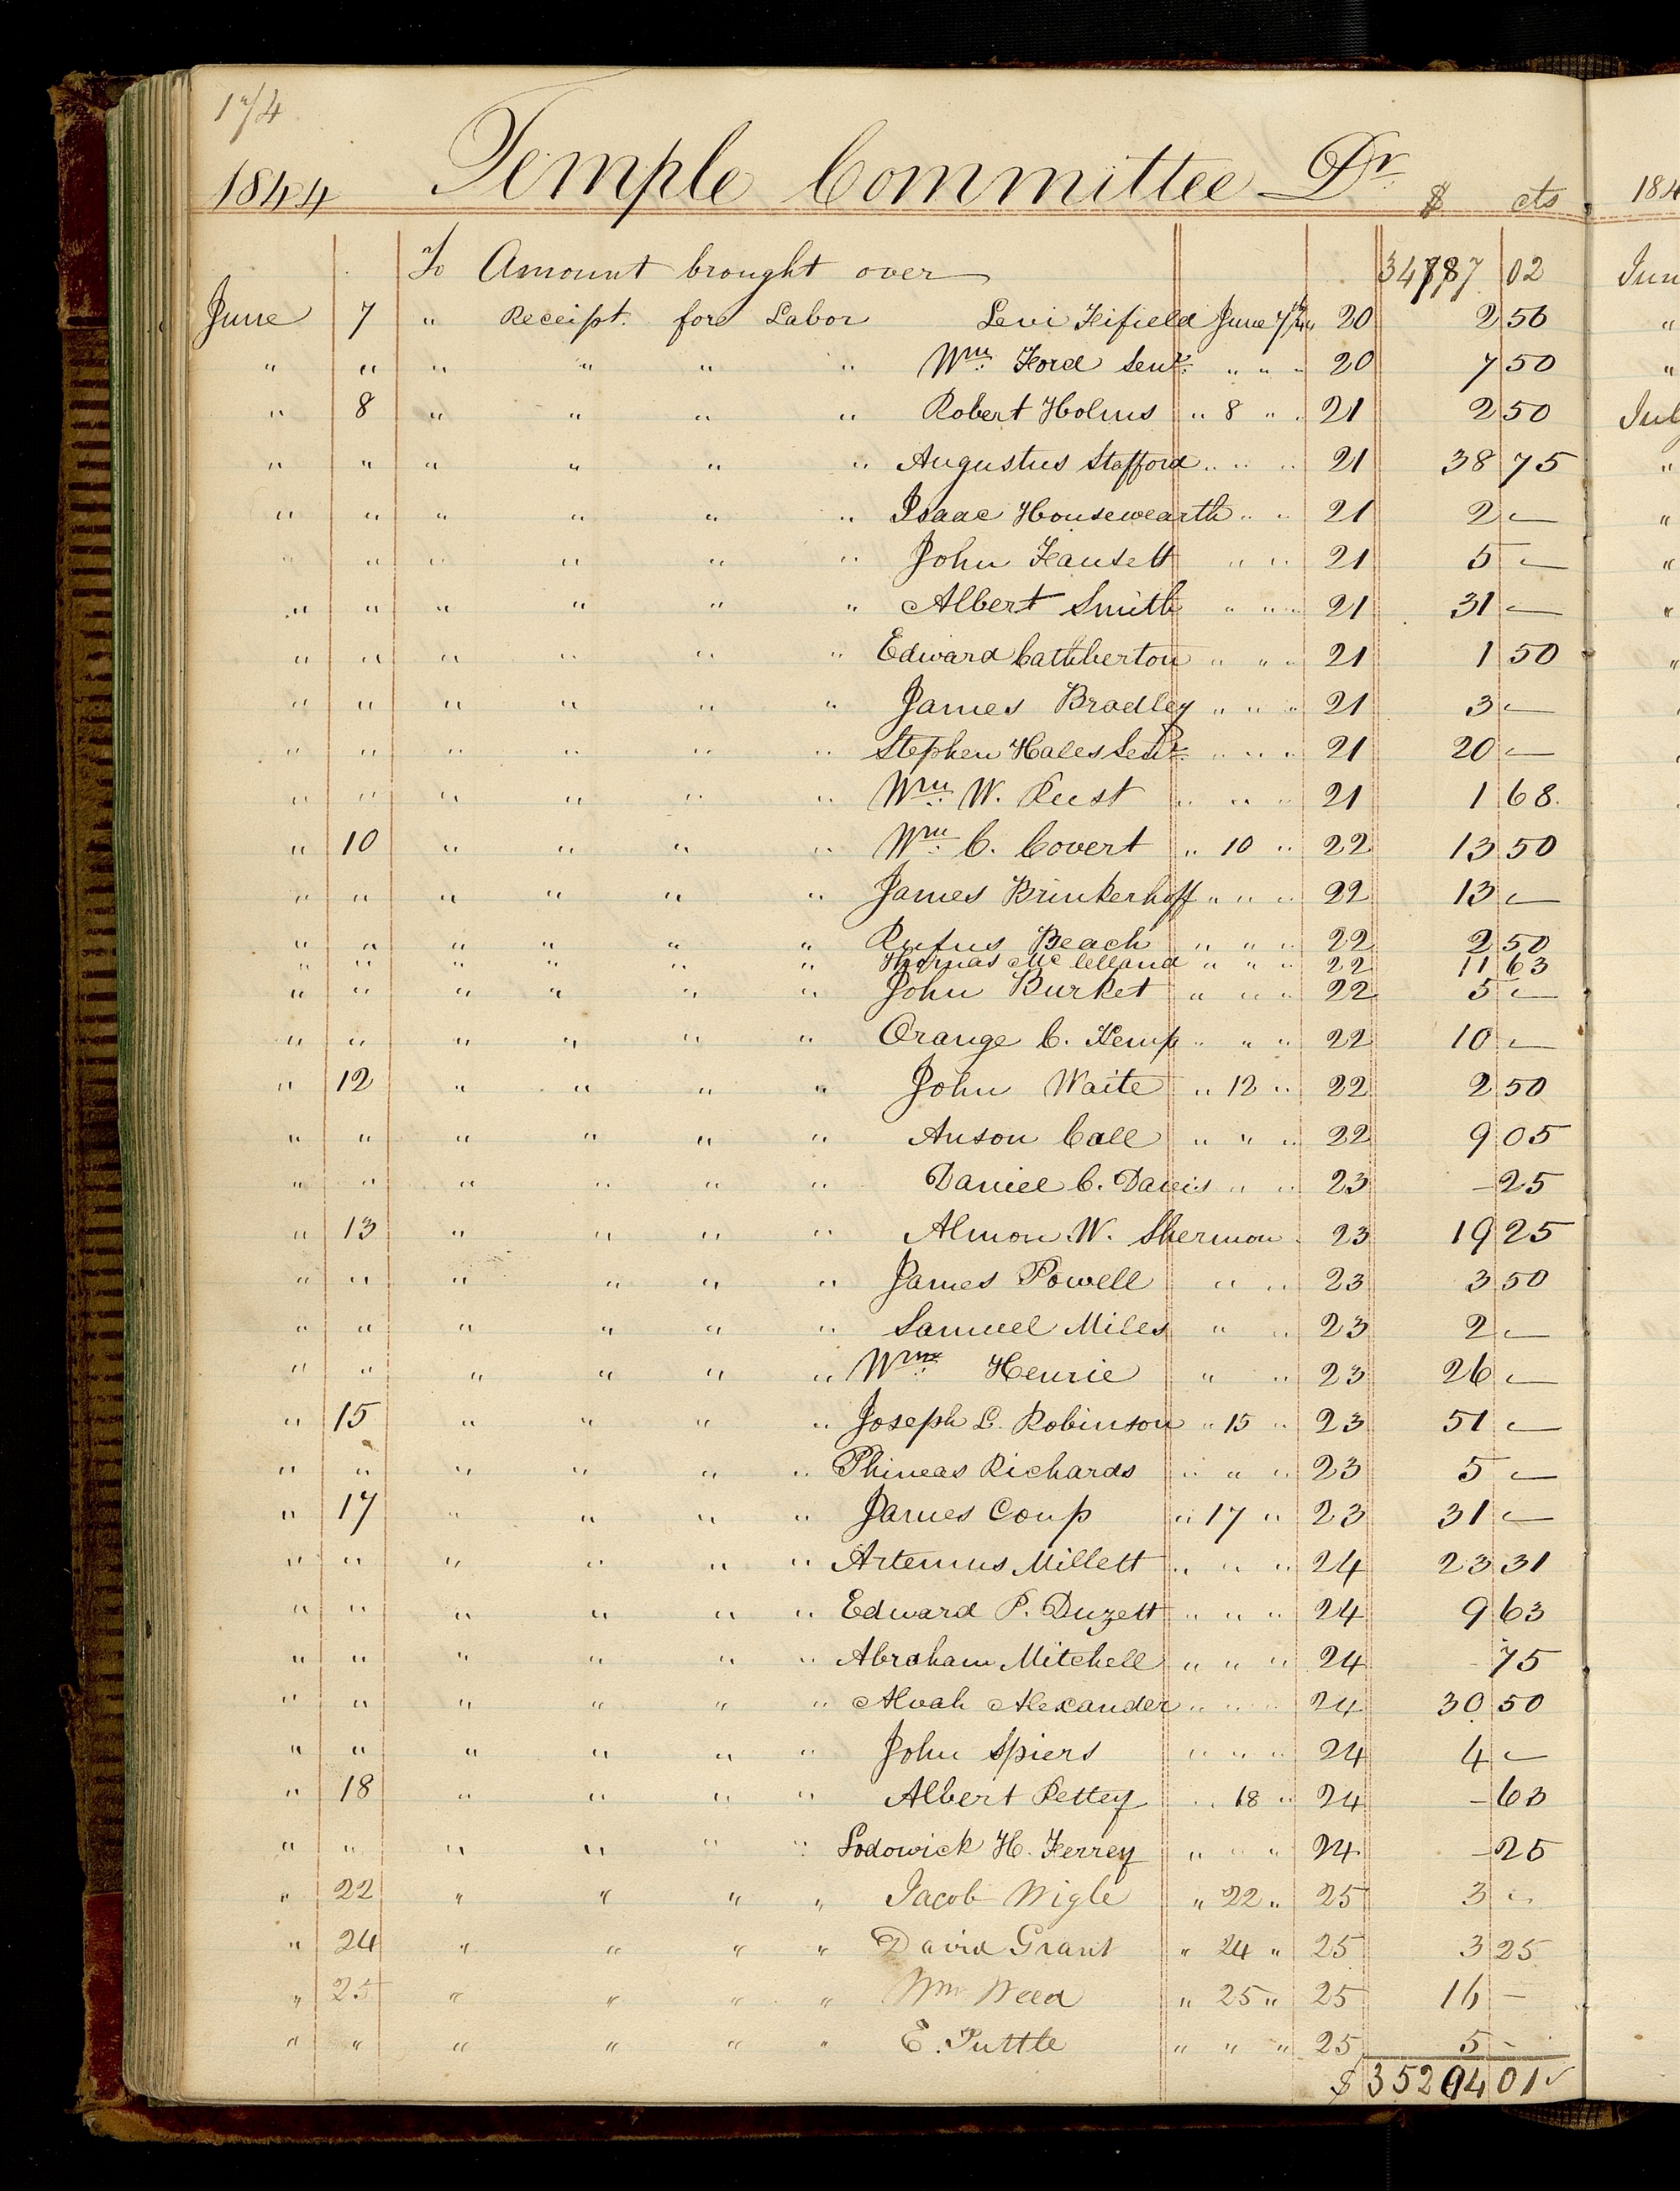 174
1844 Temple Committee Dr. $ cts
To Amount brought over 34787 02
June 7 " Receipt. fore Labor Levi Fifield June 7th 44 20 2 50
" " " " " " Wm. Ford Senr. " " " 20 7 50
" 8 " " " " Robert Holms " 8 " " 21 2 50
" " " " " " Augustus Stafford " " " 21 38 75
" " " " " " Isaac Housewearth " " 21 2 —
" " " " " " John Fausett " " " 21 5 —
" " " " " " Albert Smith " " " 21 31 —
" " " " " " Edward Cathberton " " " 21 1 50
" " " " " " James Bradley " " " 21 3 —
" " " " " " Stephen Hales Senr. " " " 21 20 —
" " " " " " Wm. W. Rust " " " 21 1 68.
" 10 " " " " Wm. C. Covert " 10 " 22 13 50
" " " " " " James Brinkerhoff " " " 22 13 —
" " " " " " Rufus Beach " " " 22 2 50
" " " " " " Thomas Mc Clelland " " " 22 11 63
" " " " " " John Burket " " " 22 5 —
" " " " " " Orange C. Kemp " " " 22 10 —
" 12 " " " " John Waite " 12 " 22 2 50
" " " " " " Anson Call " " " 22 9 05
" " " " " " Daniel C. Davis " " 23 - 25
" 13 " " " " Almon W. Shermon " 23 19 25
" " " " " " James Powell " " 23 3 50
" " " " " " Samuel Miles " " 23 2 —
" " " " " " Wm. Henrie " " 23 26 —
" 15 " " " " Joseph L. Robinson " 15 " 23 51 —
" " " " " " Phineas Richards " " " 23 5 —
" 17 " " " " James Coup " 17 " 23 31 —
" " " " " " Artemus Millett " " " 24 23 31
" " " " " " Edward P. Duzett " " " 24 9 63
" " " " " " Abraham Mitchell " " " 24 - 75
" " " " " " Alvah Alexander " " " 24 30 50
" " " " " " John Spiers " " " 24 4 —
" 18 " " " " Albert Pettey " 18 " 24 - 63
" " " " " " Lodowick H. Ferrey " " " 24 - 25
" 22 " " " " Jacob Wigle " 22 " 25 3 —
" 24 " " " " David Grant " 24 " 25 3 25
" 25 " " " " Wm Weed " 25 " 25 16 —
" " " " " " E. Tuttle " " " 25 5 -
$ 35204 01
184
Jun
"
"
Jul
"
"
"
"
"